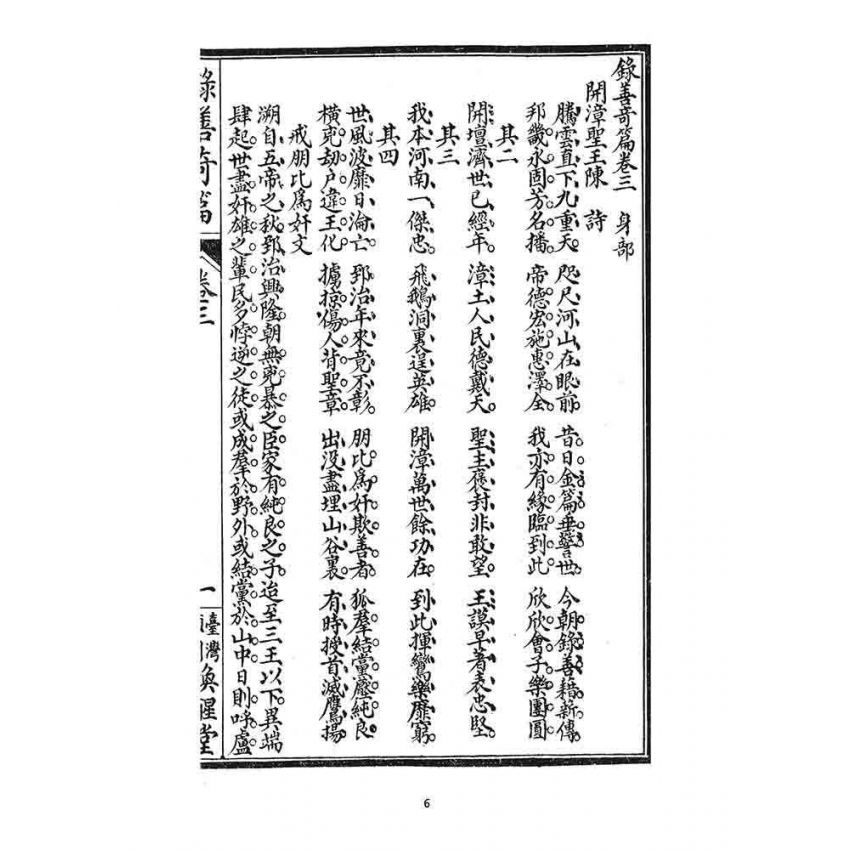 錄善奇篇卷三　身部
開漳聖王陳　詩
騰雲直下九重天　咫尺河山在眼前　昔日金篇垂警世　今朝錄善藉新傳
邦畿永固芳名播　帝德宏施惠澤全　我亦有緣臨到此　欣欣會子樂團圓
其二
開壇濟世已經年　漳土人民德戴天　聖主褒封非敢望　王謨早著表忠堅
其三
我本河南一傑忠　飛鵝洞裏逞英雄　開漳萬世餘功在　到此揮鸞樂靡窮
其四
世風波靡日淪亡　郅治年來竟不彰　朋比為奸欺善者　狐羣結黨壓純良
橫兇劫户違王化　擄掠傷人背聖章　出没盡埋山谷裏　有時授首滅鷹揚
戒朋比為奸文
溯自五帝之秋郅治興隆朝無兇暴之臣家有純良之子迨至三王以下異端
肆起世盡奸雄之輩民多悖逆之徒或成羣於野外或結黨於山中日則呼盧
錄善奇篇　卷三　一　臺灣　喚醒堂
6